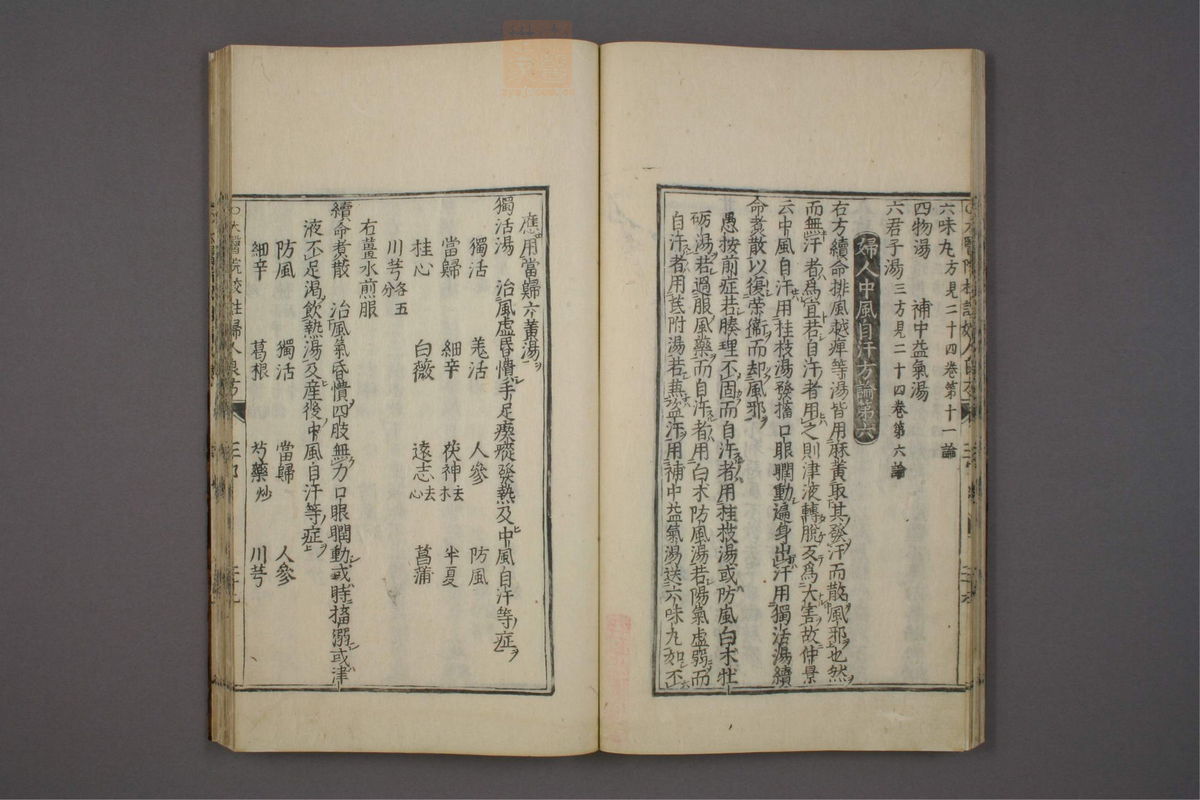 六味丸方見二十四卷第十一論
四物湯　補中益氣湯
六君子湯三方見二十四卷第六論
婦人中風自汗方論第六
右方續命排風越痺等湯皆用麻黃取其發汗而散風邪也然
而無汗者爲宜若自汗者用之則津液轉脫反爲大害故仲景
云中風自汗用桂枝湯發搐口眼瞤動遍身出汗用獨活湯續
命煑散以復榮衞而却風邪
愚按前症若腠理不固而自汗者用桂枝湯或防風白朮牡
礪湯若過服風藥而自汗者用白朮防風湯若陽氣虛弱而
自汗者用芪附湯若兼盜汗用補中益氣湯送六味丸如不
應用當歸六黃湯
獨活湯　治風虛昏憒手足瘈瘲發熱及中風自汗等症
獨活　羗活　人參　防風
當歸　細辛　茯神去木　半夏
桂心　白薇　遠志去心　菖蒲
川芎各五分
右薑水煎服
續命煑散　治風氣昏憒四肢無力口眼瞤動或時搐溺或津
液不足渴飲熱湯及産後中風自汗等症
防風　獨活　當歸　人參
細辛　葛根　芍藥炒　川芎
太醫院校註婦人良方